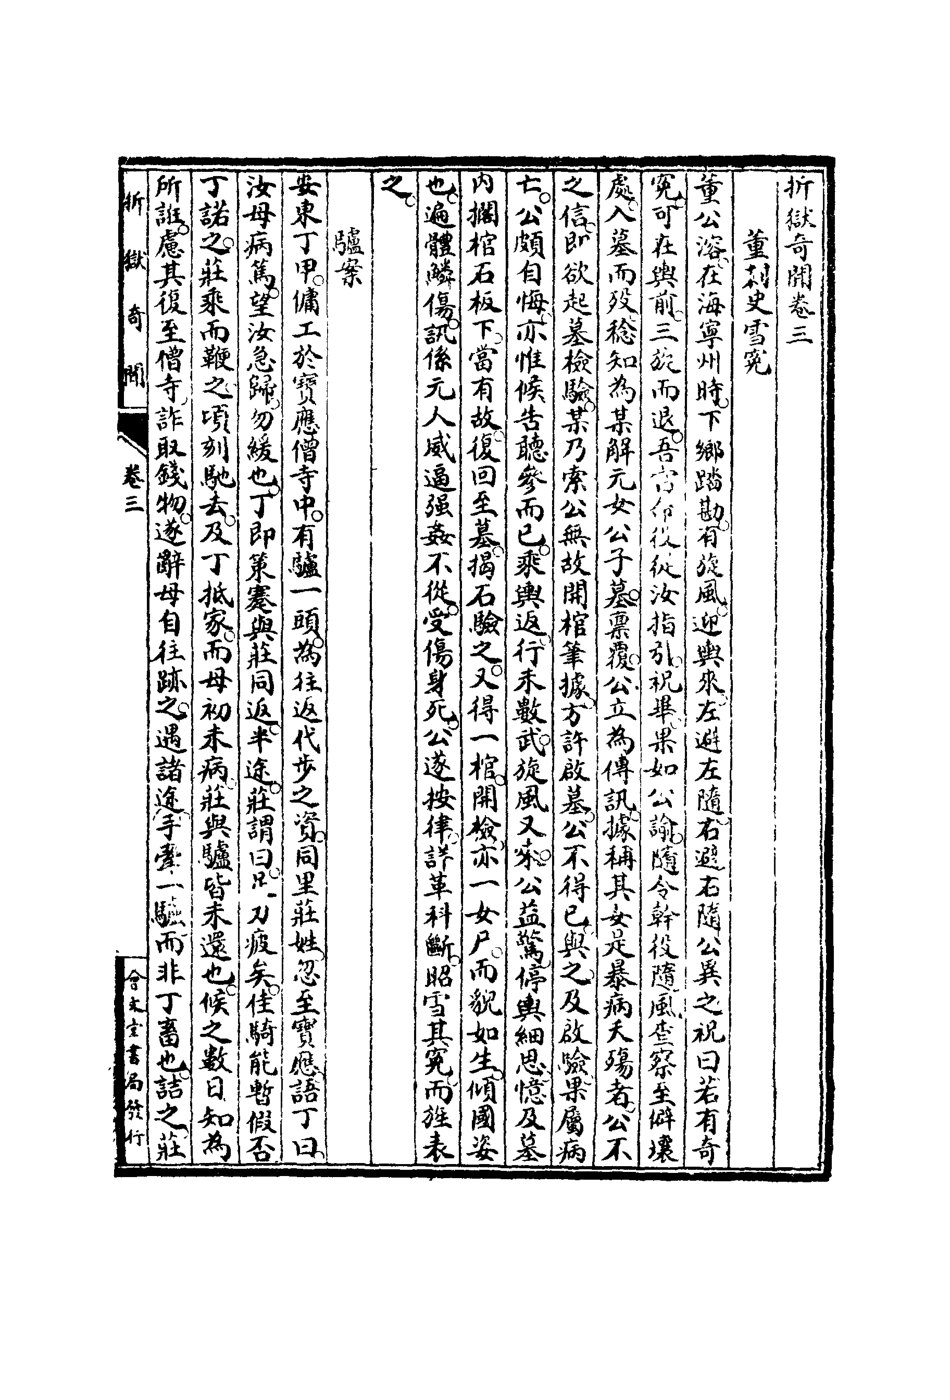 折獄奇聞卷三
董刺史雪冤
董公溶。在海寧州時。下鄉踏勘。有旋風。迎輿來。左避左隨。右避右隨。公異之。祝曰。若有奇
冤。可在輿前。三旋而退。吾當命役從汝指引。祝畢。果如公諭。隨令幹役隨風查察。至僻壤
處。入墓而歿。稔知為某解元女公子墓。稟覆。公立為傳訊。據稱其女是暴病夭殤者。公不
之信。即欲起墓檢驗。某乃索公無故開棺筆據。方許啟墓。公不得已。與之。及啟驗。果屬病
亡。公頗自悔。亦惟候告聽參而已。乘輿返。行未數武。旋風又來。公益驚。停輿細思。憶及墓
內擱棺石板下。當有故。復回至墓。揭石驗之。又得一棺。開檢。亦一女尸。而貌如生。傾國姿
也。遍體鱗傷。訊係元人威逼强姦不從。受傷身死。公遂按律詳革科斷。昭雪其冤。而旌表
之。
驢案
安東丁甲。傭工於寶應僧寺中。有驢一頭。為往返代步之資。同里莊姓。忽至寶應。語丁曰。
汝母病篤。望汝急歸。勿緩也。丁即策蹇與莊同返。半途。莊謂曰。足力疲矣。佳騎能暫假否。
丁諾之。莊乘而鞭之。頃刻馳去。及丁抵家。而母初未病。莊與驢皆未還也。候之數日。知為
所誑。慮其復至僧寺。詐取錢物。遂辭母自往跡之。遇諸途。手牽一驢。而非丁畜也。詰之。莊
折獄奇聞
卷三
會文堂書局發行